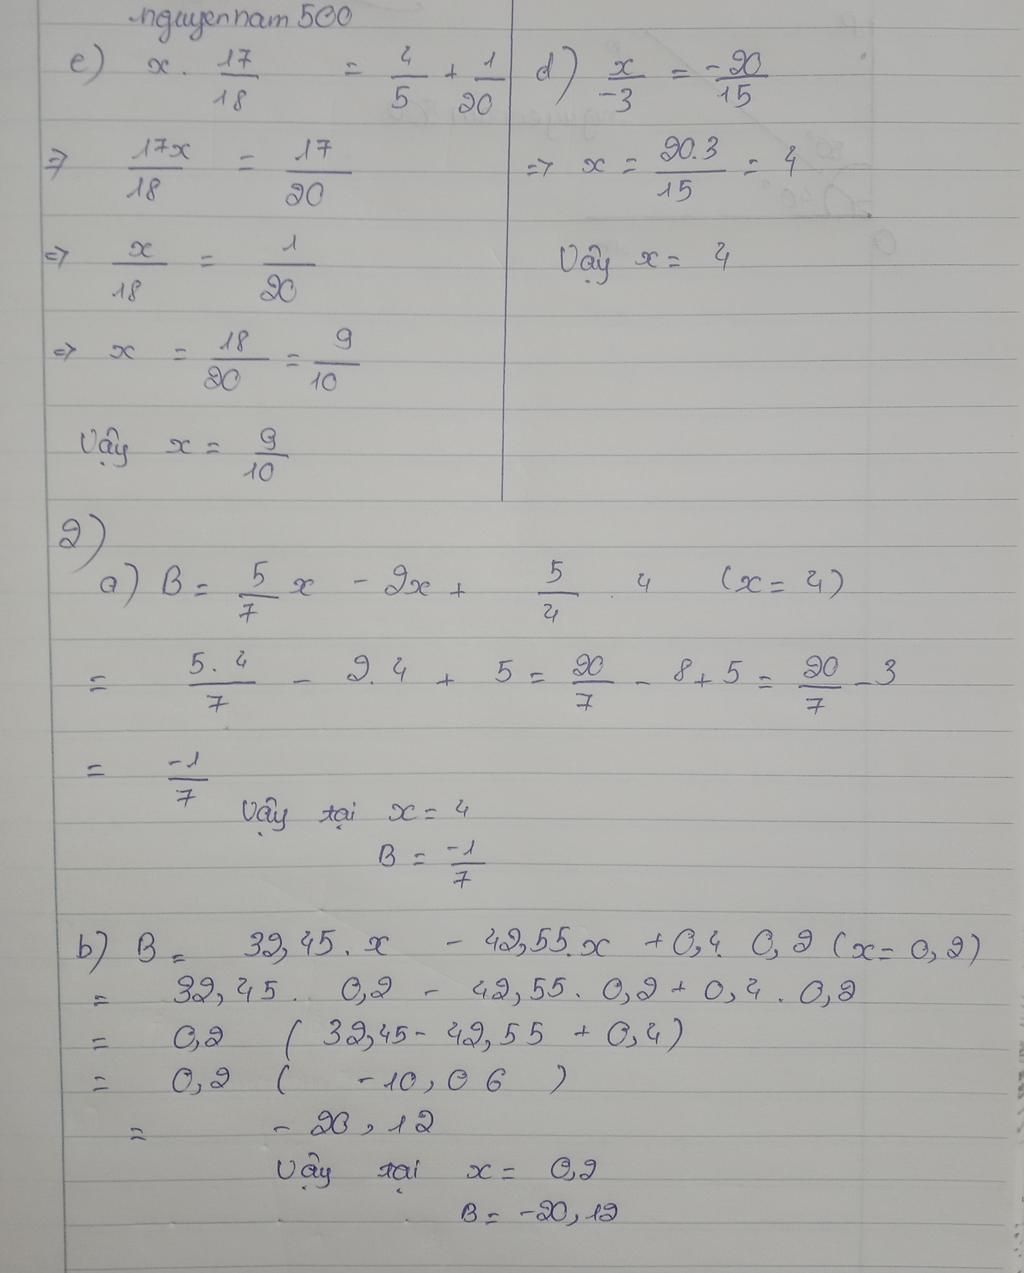 nguyennam 500
e) x . 17/18 = 4/5 + 1/20
=> 17x/18 = 17/20
=> x/18 = 1/20
=> x = 18/20 = 9/10
Vậy x = 9/10
d) x/-3 = -20/15
=> x = 20.3/15 = 4
Vậy x = 4
2)
a) B = 5/7 x - 2x + 5/4 . 4 (x = 4)
= 5.4/7 - 2.4 + 5 = 20/7 - 8 + 5 = 20/7 - 3
= -1/7
Vậy tại x = 4
B = -1/7
b) B = 32,45.x - 42,55.x + 0,4. 0,2 (x = 0,2)
= 32,45. 0,2 - 42,55. 0,2 + 0,4 . 0,2
= 0,2 ( 32,45 - 42,55 + 0,4)
= 0,2 ( -10,06 )
= - 20,12
Vậy tại x = 0,2
B = -20,12